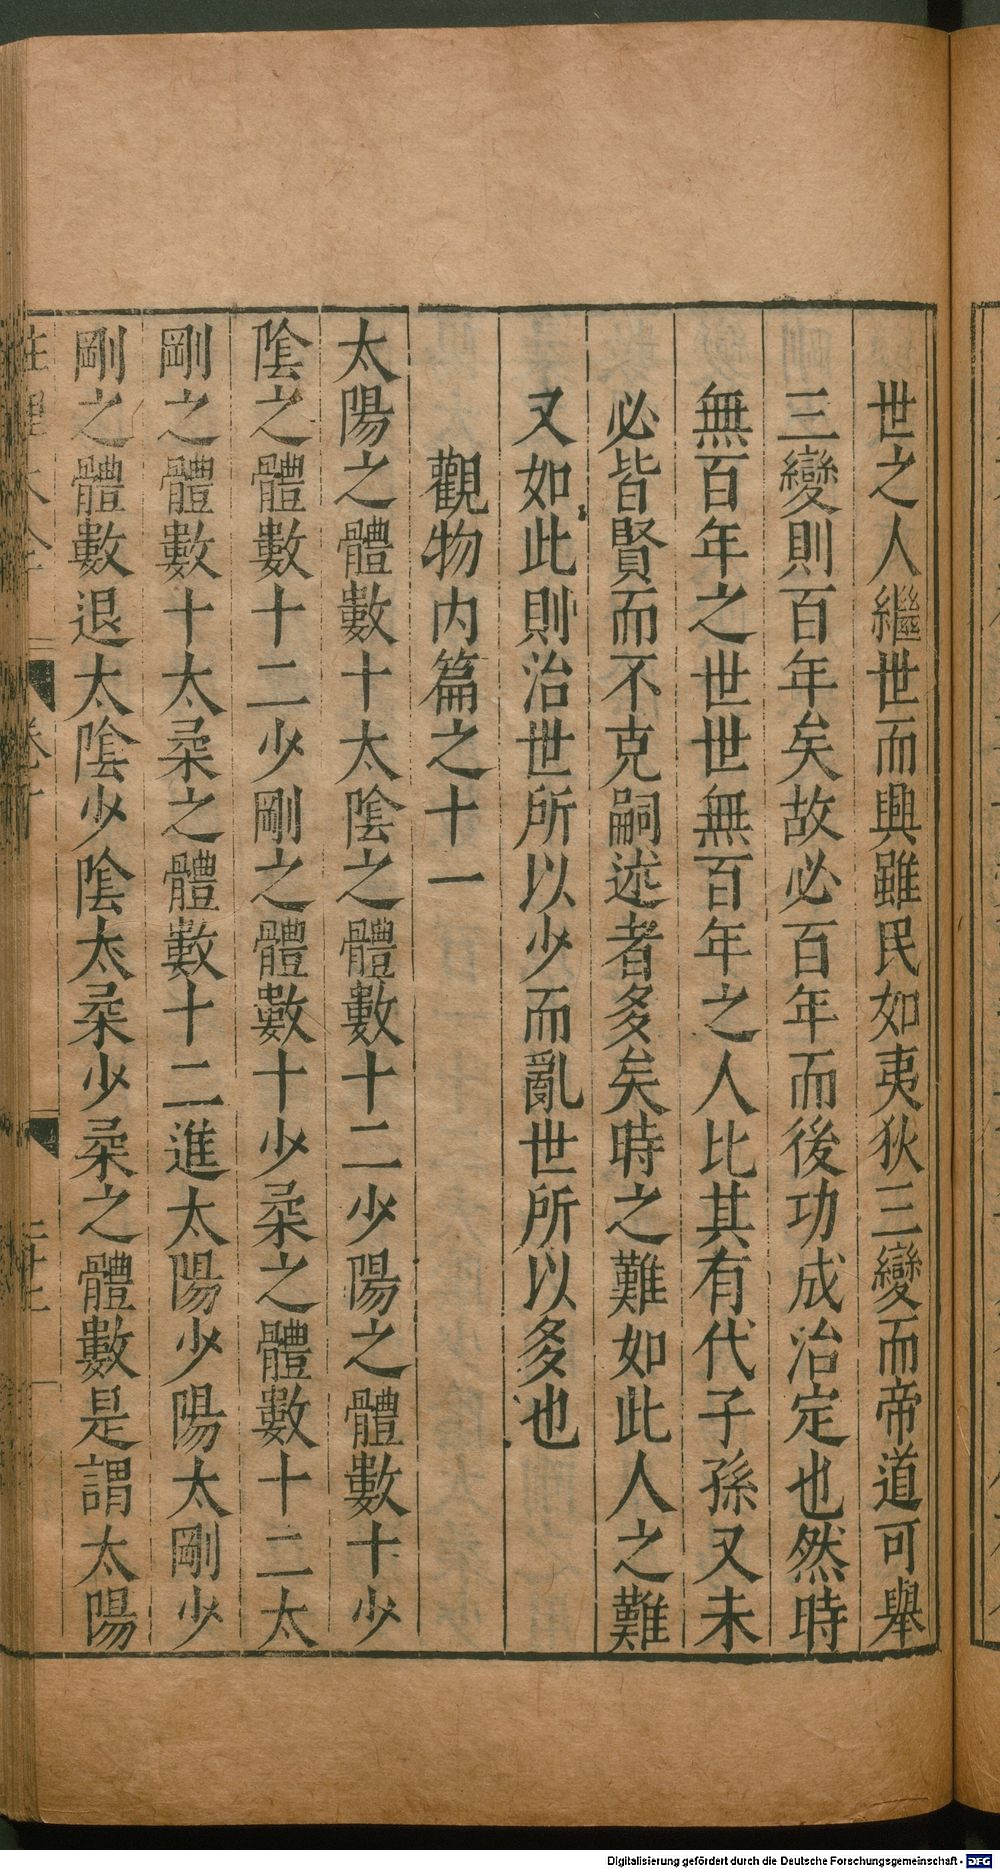 世之人繼世而興雖民如夷狄三變而帝道可舉
三變則百年矣故必百年而後功成治定也然時
無百年之世世無百年之人比其有代子孫又未
必皆賢而不克嗣述者多矣時之難如此人之難
又如此則治世所以少而亂世所以多也
觀物内篇之十一
太陽之體數十太陰之體數十二少陽之體數十少
陰之體數十二少剛之體數十少柔之體數十二太
剛之體數十太柔之體數十二進太陽少陽太剛少
剛之體數退太陰少陰太柔少柔之體數是謂太陽
Digitalisierung gefördert durch die Deutsche Forschungsgemeinschaft - DFG